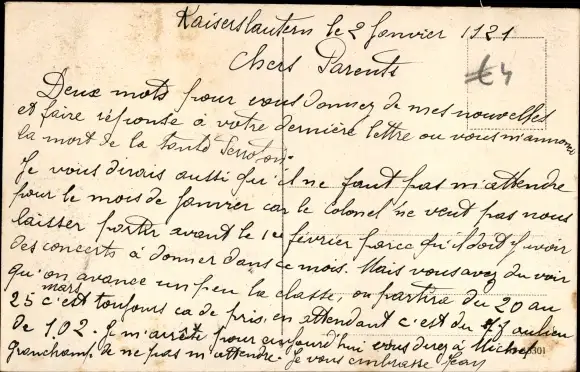 Kaiserslautern le 2 Janvier 1921
Chers Parents
€4
Deux mots pour vous donnez de mes nouvelles
et faire réponse à votre dernière lettre ou vous m'annoncez
la mort de la tante
Je vous dirais aussi qu'il ne faut pas m'attendre
pour le mois de Janvier car le Colonel ne veut pas nous
laisser partir avant le 1er février parce qu'il doit y avoir
des concerts à donner dans ce mois. Mais vous avez du voir
qu'on avance un peu la classe, on partira du 20 au
25 mars c'est toujours ca de pris, en attendant c'est du au lieu
de 102. Je m'arrête pour aujourd'hui vous direz à Michel
Granchamp de ne pas m'attendre. Je vous embrasse Jean
3301